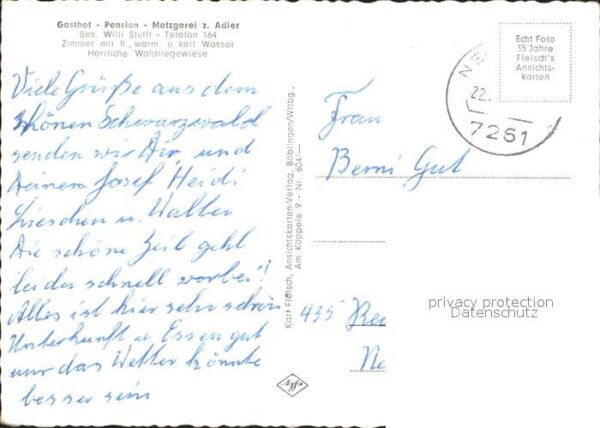 Gasthof - Pension - Metzgerei z. Adler
Bes. Willi Stufft - Telefon 164
Zimmer mit fl., warm. u. kalt. Wasser
Herrliche Waldliegewiese
Viele Grüße aus dem
schönen Schwarzwald
senden wir Dir, und
Deinem Josef Heidi
Lieschen u. Walter
Die schöne Zeit geht
leider schnell vorbei!
Alles ist hier sehr schön
Unterkunft u. Essen gut
nur das Wetter könnte
besser sein
Karl Fleisch, Ansichtskarten-Verlag, Böblingen/Wttbg.,
Am Käppele 9 - Nr. 604/—
Agfa
Echt Foto
35 Jahre
Fleisch's
Ansichts-
karten
22.
7261
Frau
Berni Gut
435 Rec
Ne
privacy protection
Datenschutz